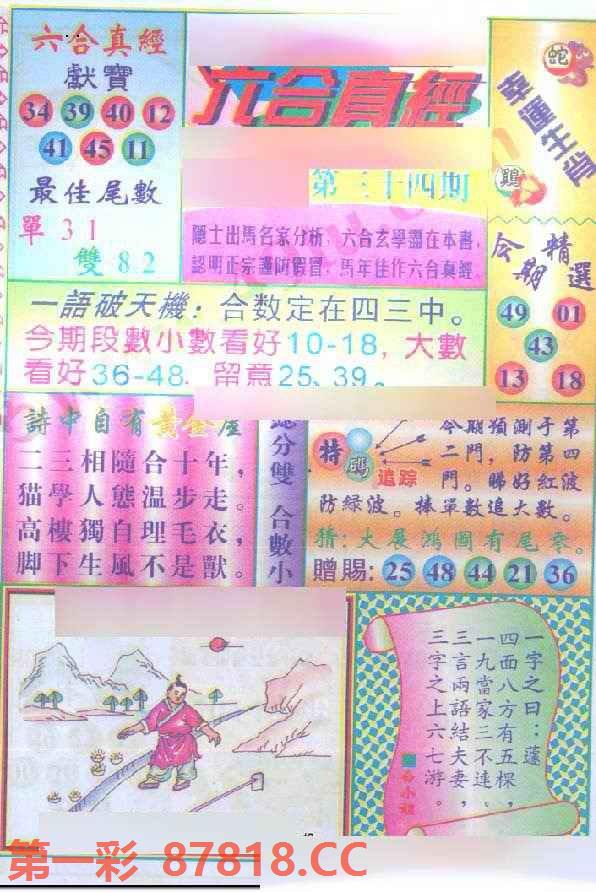 六合真經
獻寶
34 39 40 12
41 45 11
最佳尾數
單 3 1
雙 8 2
六合真經
第三十四期
隱士出馬名家分析，六合玄學盡在本書，
認明正宗謹防假冒，馬年佳作六合真經
蛇
幸運生肖
鷄
今期精選
49 01
43
13 18
一語破天機：合数定在四三中。
今期段數小數看好10-18，大數
看好36-48，留意25、39。
詩中自有黃金屋
二三相隨合十年，
猫學人態温步走。
高樓獨自理毛衣，
脚下生風不是獸。
分雙 合數小
特碼追踪
二門，防第四
門。睇好紅波
防緑波。捧單數追大數。
猜：大展鴻圖有尾零。
贈賜：25 48 44 21 36
一字之曰：蓬
四面八方有五棵，
一九當家三不連。
三言兩語結夫妻，
三字之上六七游。
第一彩 87818.CC